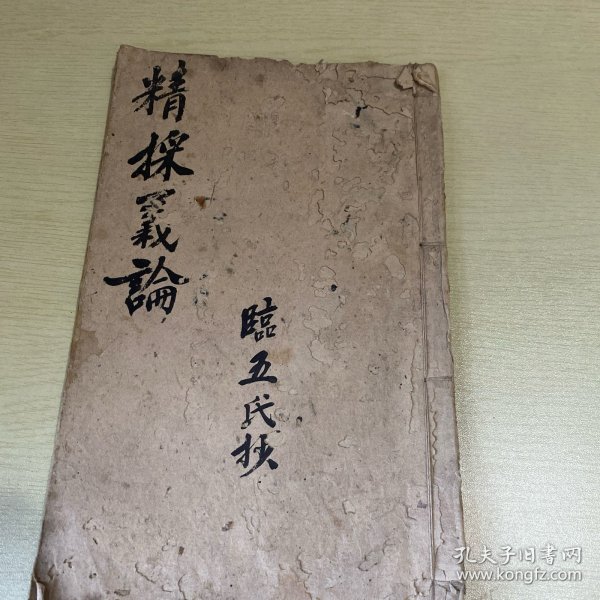 精採義論
臨五氏
孔夫子旧书网
www.kongfz.com